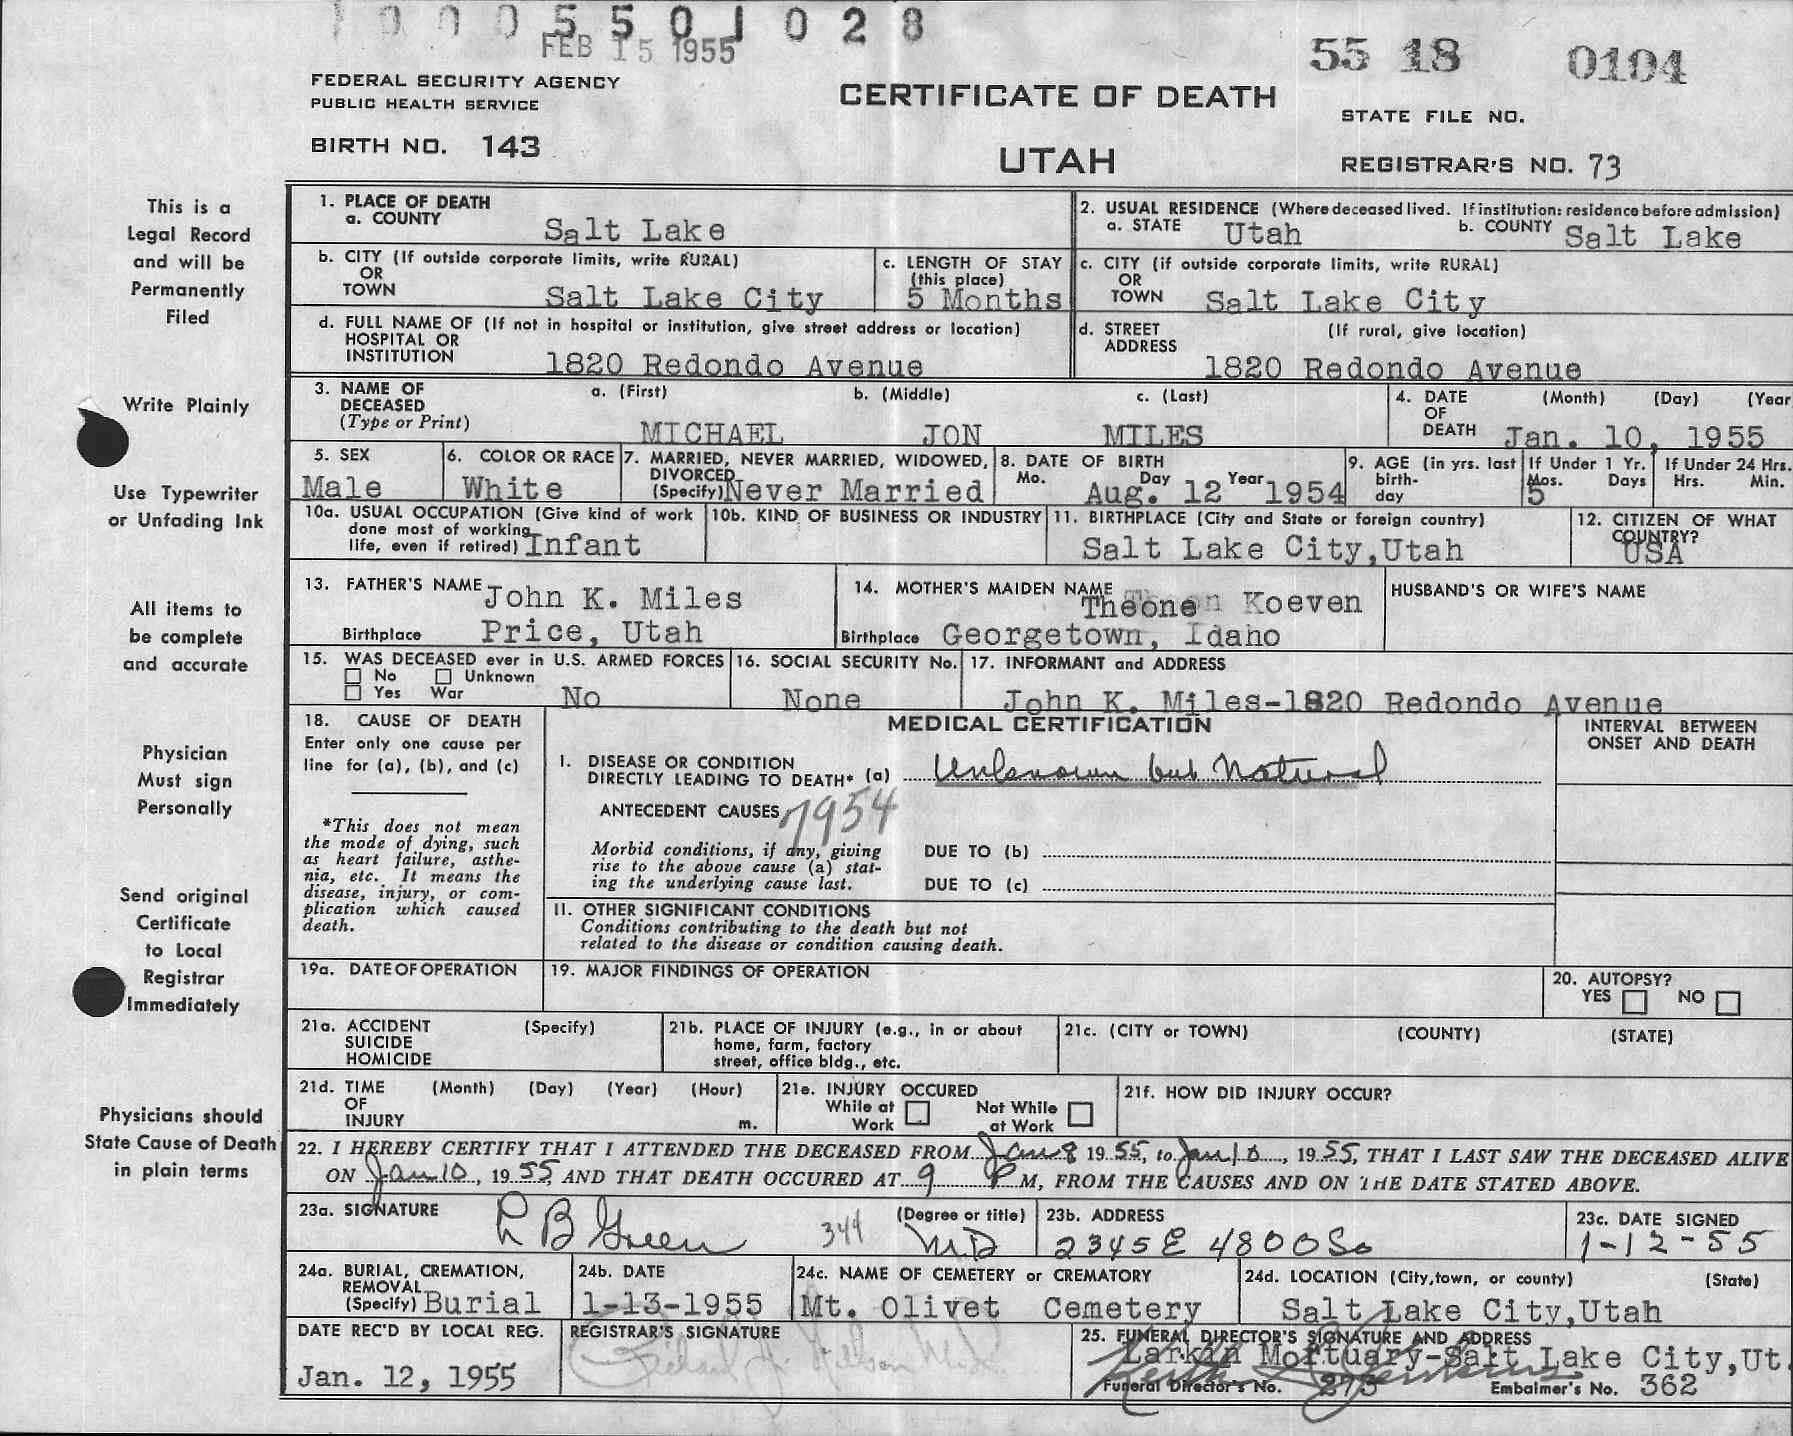 1 0 0 0 5 5 0 1 0 2 8
FEB 15 1955
55 18 0104
FEDERAL SECURITY AGENCY
PUBLIC HEALTH SERVICE
CERTIFICATE OF DEATH
STATE FILE NO.
BIRTH NO. 143
UTAH
REGISTRAR'S NO. 73
This is a
Legal Record
and will be
Permanently
Filed
Write Plainly
Use Typewriter
or Unfading Ink
All items to
be complete
and accurate
Physician
Must sign
Personally
Send original
Certificate
to Local
Registrar
Immediately
Physicians should
State Cause of Death
in plain terms
1. PLACE OF DEATH
a. COUNTY Salt Lake
2. USUAL RESIDENCE (Where deceased lived. If institution: residence before admission)
a. STATE Utah b. COUNTY Salt Lake
b. CITY (If outside corporate limits, write RURAL)
OR
TOWN Salt Lake City
c. LENGTH OF STAY
(this place)
5 Months
c. CITY (if outside corporate limits, write RURAL)
OR
TOWN Salt Lake City
d. FULL NAME OF (If not in hospital or institution, give street address or location)
HOSPITAL OR
INSTITUTION 1820 Redondo Avenue
d. STREET (If rural, give location)
ADDRESS 1820 Redondo Avenue
3. NAME OF a. (First) b. (Middle) c. (Last)
DECEASED
(Type or Print) MICHAEL JON MILES
4. DATE (Month) (Day) (Year
OF
DEATH Jan. 10, 1955
5. SEX
Male
6. COLOR OR RACE
White
7. MARRIED, NEVER MARRIED, WIDOWED,
DIVORCED
(Specify) Never Married
8. DATE OF BIRTH
Mo. Day Year
Aug. 12 1954
9. AGE (in yrs. last
birth-
day
If Under 1 Yr.
Mos. Days
5
If Under 24 Hrs.
Hrs. Min.
10a. USUAL OCCUPATION (Give kind of work
done most of working
life, even if retired) Infant
10b. KIND OF BUSINESS OR INDUSTRY
11. BIRTHPLACE (City and State or foreign country)
Salt Lake City, Utah
12. CITIZEN OF WHAT
COUNTRY?
USA
13. FATHER'S NAME John K. Miles
Birthplace Price, Utah
14. MOTHER'S MAIDEN NAME Theone Koeven
Birthplace Georgetown, Idaho
HUSBAND'S OR WIFE'S NAME
15. WAS DECEASED ever in U.S. ARMED FORCES
No Unknown
Yes War No
16. SOCIAL SECURITY No.
None
17. INFORMANT and ADDRESS
John K. Miles-1820 Redondo Avenue
18. CAUSE OF DEATH
Enter only one cause per
line for (a), (b), and (c)
*This does not mean
the mode of dying, such
as heart failure, asthe-
nia, etc. It means the
disease, injury, or com-
plication which caused
death.
MEDICAL CERTIFICATION
INTERVAL BETWEEN
ONSET AND DEATH
I. DISEASE OR CONDITION
DIRECTLY LEADING TO DEATH* (a) Unknown but Natural
ANTECEDENT CAUSES 7954
Morbid conditions, if any, giving
rise to the above cause (a) stat-
ing the underlying cause last.
DUE TO (b)
DUE TO (c)
II. OTHER SIGNIFICANT CONDITIONS
Conditions contributing to the death but not
related to the disease or condition causing death.
19a. DATE OF OPERATION
19. MAJOR FINDINGS OF OPERATION
20. AUTOPSY?
YES NO
21a. ACCIDENT (Specify)
SUICIDE
HOMICIDE
21b. PLACE OF INJURY (e.g., in or about
home, farm, factory
street, office bldg., etc.
21c. (CITY or TOWN) (COUNTY) (STATE)
21d. TIME (Month) (Day) (Year) (Hour)
OF
INJURY m.
21e. INJURY OCCURED
While at Work Not While at Work
21f. HOW DID INJURY OCCUR?
22. I HEREBY CERTIFY THAT I ATTENDED THE DECEASED FROM Jan 8 1955, to Jan 10, 1955, THAT I LAST SAW THE DECEASED ALIVE
ON Jan 10, 1955 AND THAT DEATH OCCURED AT 9 P M, FROM THE CAUSES AND ON THE DATE STATED ABOVE.
23a. SIGNATURE (Degree or title)
R B Green 344 MD
23b. ADDRESS
2345 E 4800 So
23c. DATE SIGNED
1-12-55
24a. BURIAL, CREMATION,
REMOVAL
(Specify) Burial
24b. DATE
1-13-1955
24c. NAME OF CEMETERY or CREMATORY
Mt. Olivet Cemetery
24d. LOCATION (City, town, or county) (State)
Salt Lake City, Utah
DATE REC'D BY LOCAL REG.
Jan. 12, 1955
REGISTRAR'S SIGNATURE
25. FUNERAL DIRECTOR'S SIGNATURE AND ADDRESS
Larkin Mortuary-Salt Lake City, Ut.
Funeral Director's No. 273 Embalmer's No. 362